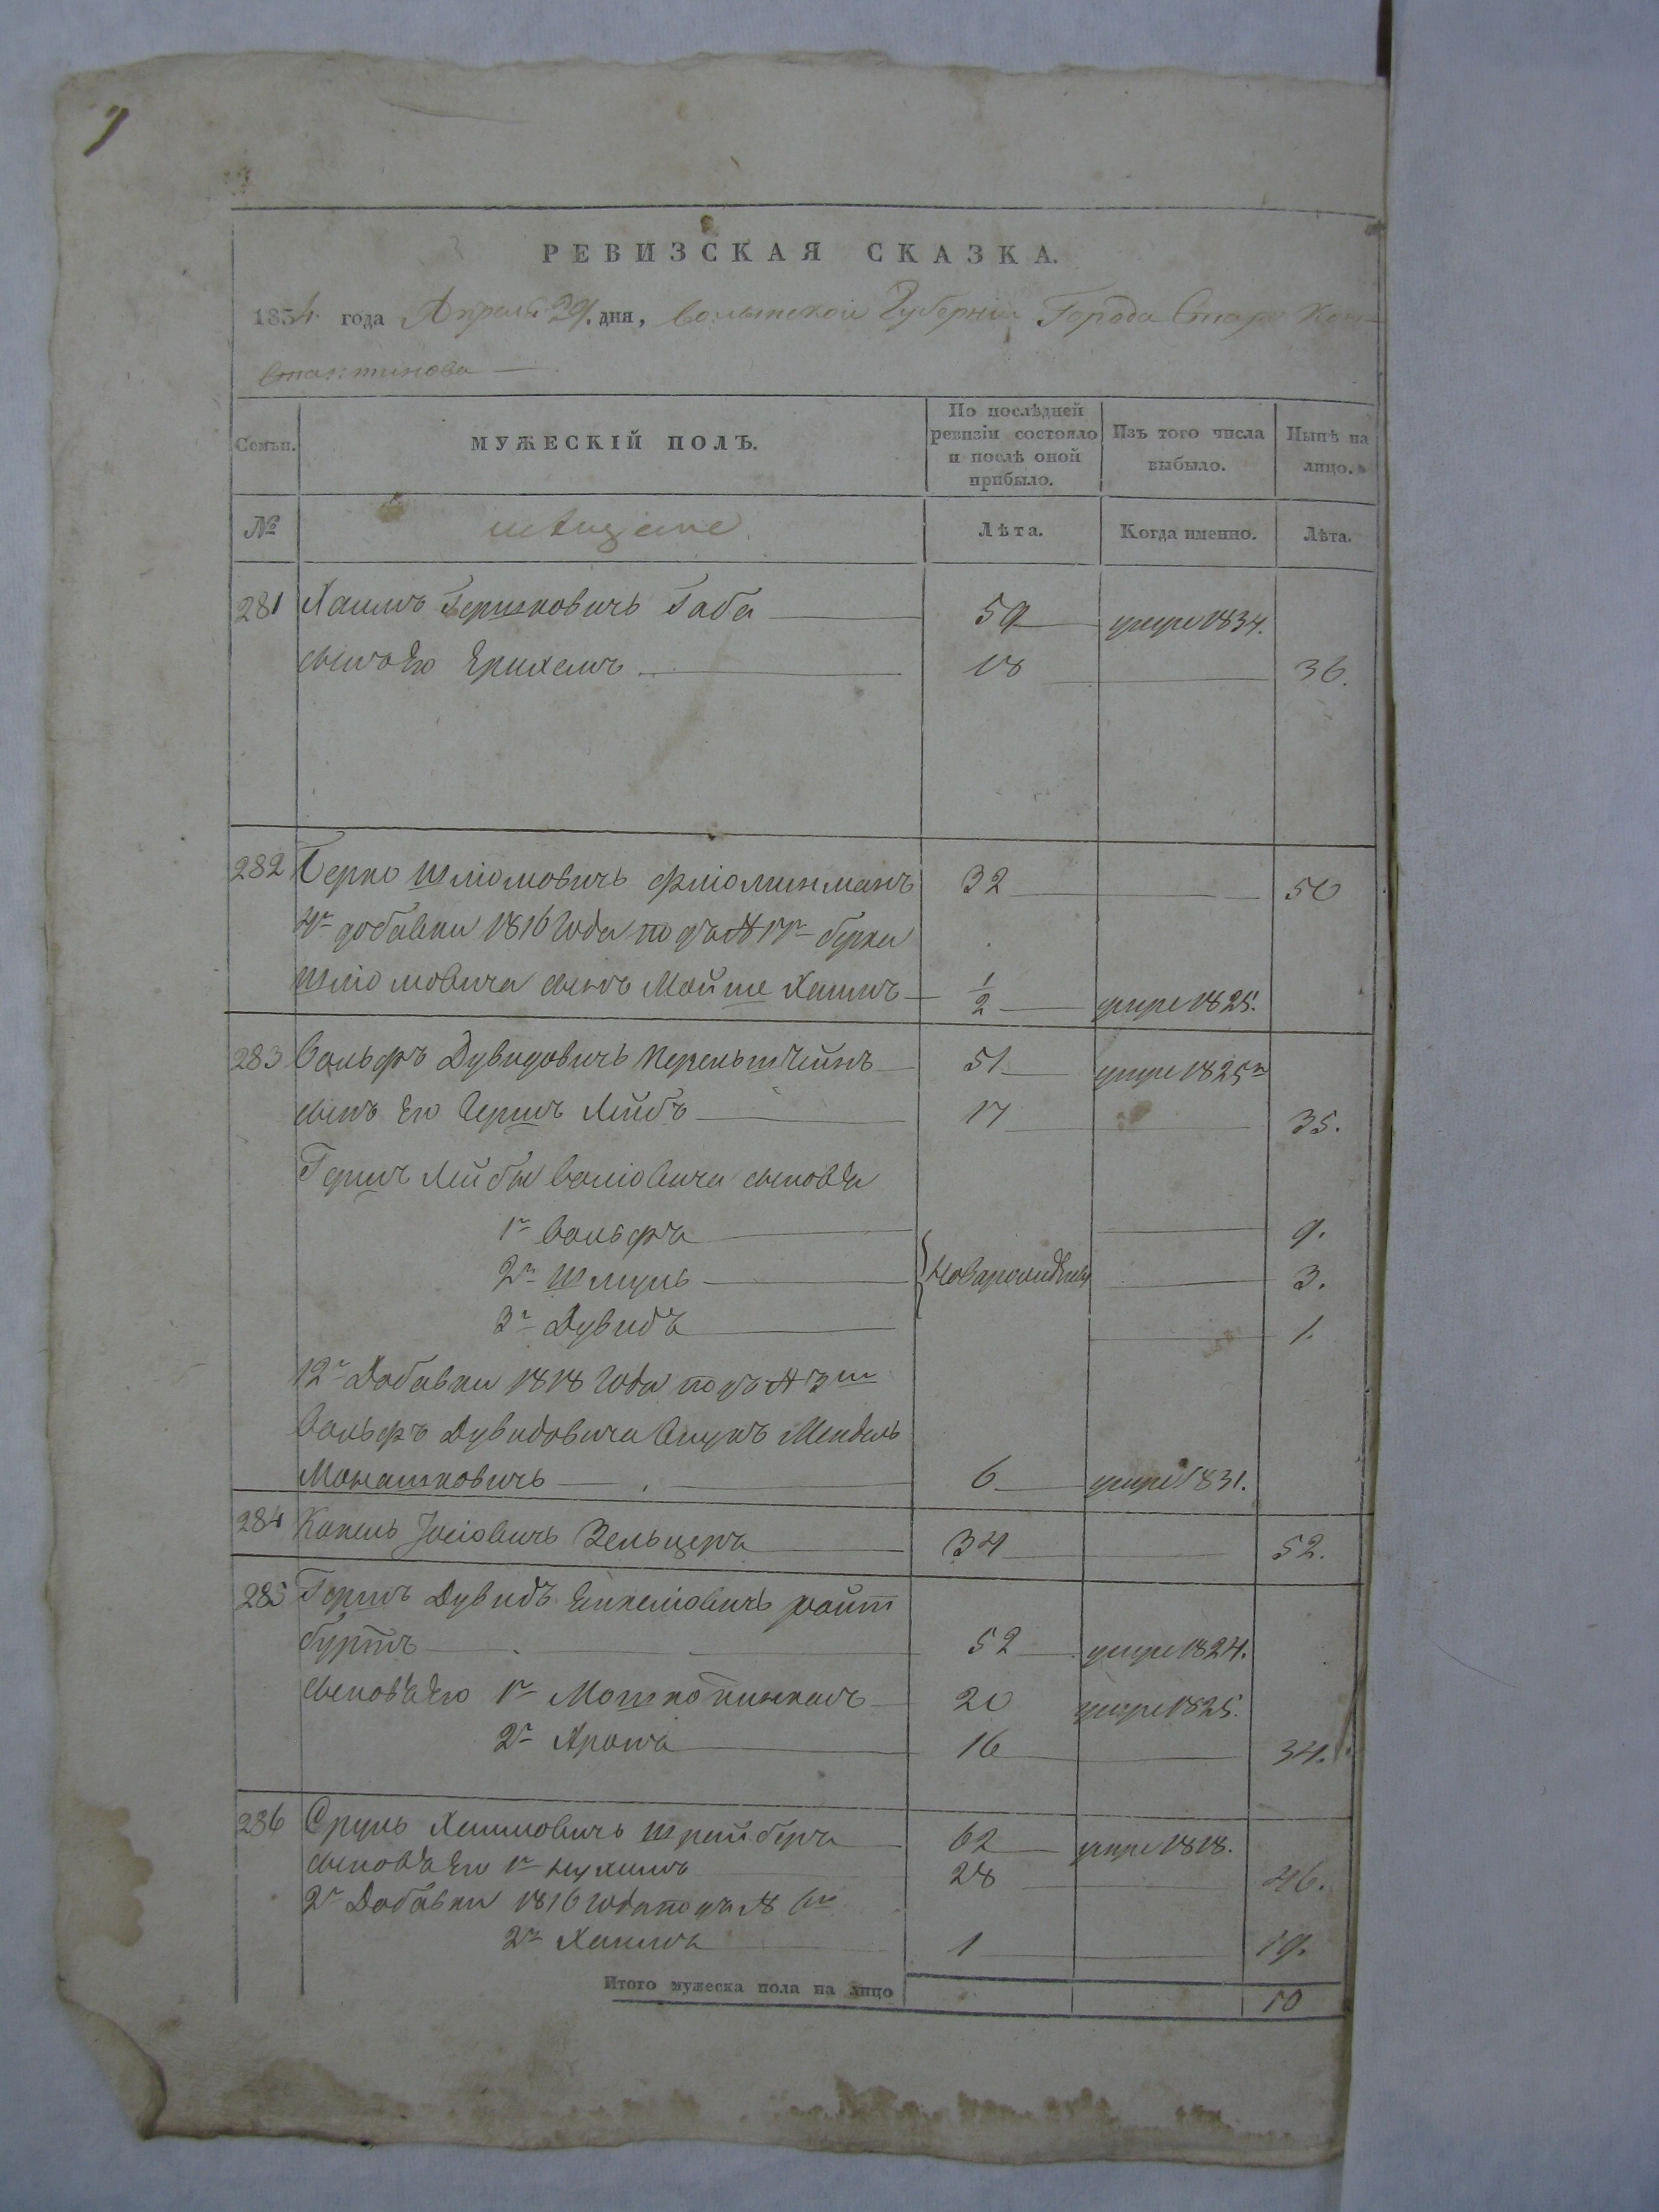 РЕВИЗСКАЯ СКАЗКА.
1834 года Апреля 29. дня, Волынской Губерніи Города Старо Кон-
стантинова
Семьи. МУЖЕСКІЙ ПОЛЪ. По послѣдней ревизіи состояло и послѣ оной прибыло. Изъ того числа выбыло. Нынѣ на лицо.
№ мѣщане Лѣта. Когда именно. Лѣта.
281 Хаимъ Гершковичь Габа 59 умре 1834.
сынъ Его Ерихемъ 18 36.
282 Берко Шліомовичь 32 50
4й добавки 1816 года подъ № 17м Берка
Шліомовича сынъ Мойше Хаимъ 1/2 умре 1825.
283 Вольфъ Дувидовичь Перельштейнъ 51 умре 1825г
сынъ Его Гершъ Лейбъ 17 35.
Гершъ Лейбы Волїовича сыновѣя
1й Вольфъ 9.
2й Шмуль Новарожденны 3.
3й Дувидъ 1.
12й Добавки 1818 года подъ № 3м
Вольфъ Дувидовича Внукъ Мендель
Монашковичь 6 умре 1831.
284 Копель Іосіовичь Зельцеръ 34 52.
285 Гершъ Дувидъ
52 умре 1824.
сыновѣя Его 1й Мошко Пинкасъ 20 умре 1825.
2й Аронъ 16 34.
286 Сруль Хаимовичь Шрейберъ 62 умре 1818.
сыновѣя Его 1й Нухимъ 28 46.
2й Добавки 1816 года подъ № 6м
2й Хаимъ 1 19.
Итого мужеска пола на лицо 10